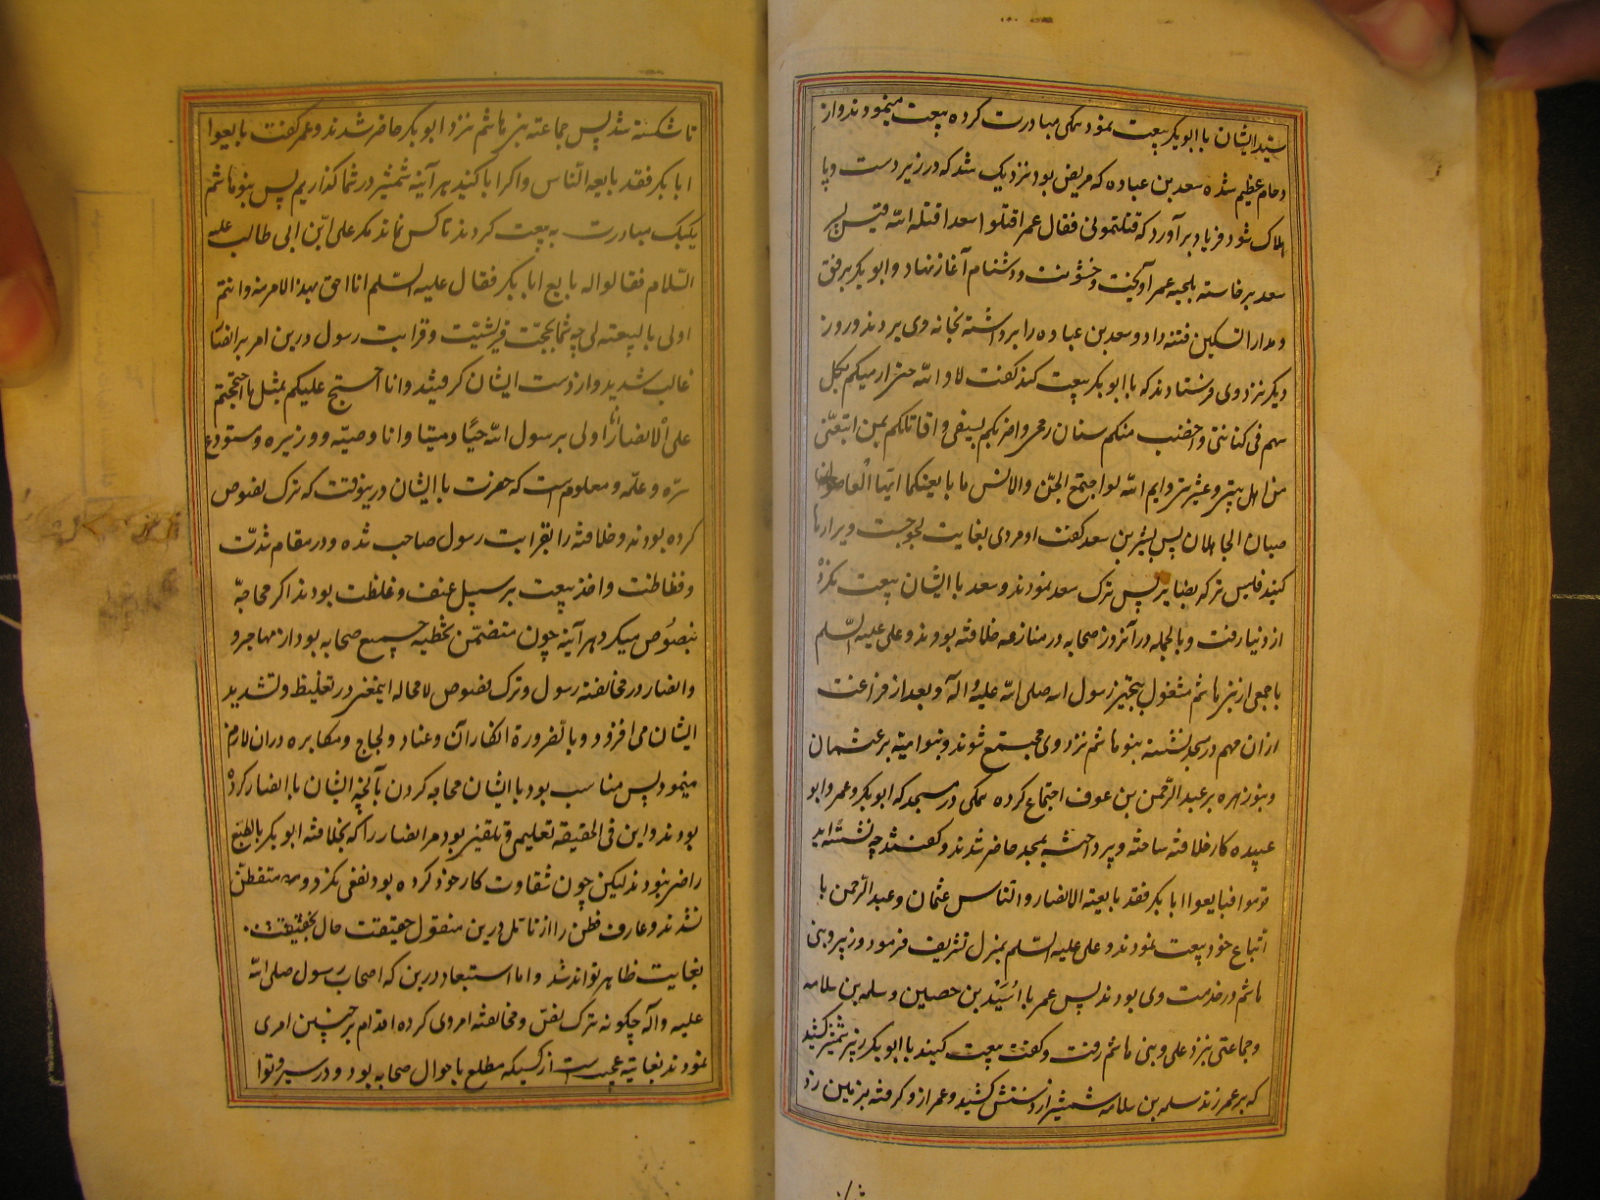 سید ایشان با ابوبکر بیعت نمود همکی مبادرت کرده بیعت مینمودند و از
دحام عظیم شده سعد بن عباده که مریض بود نزدیک شد که در زیر دست و پا
هلاک شود فریاد برآورد که قتلتمونی فقال عمر اقتلوا سعدا قتله الله قیس بن
سعد برخاسته بلحیه عمر آویخت و خشونت و دشنام آغاز نهاد و ابوبکر برفق
و مدارا تسکین فتنه داد و سعد بن عباده را برداشته بخانه وی بردند و روز
دیکر نزد وی فرستادند که با ابوبکر بیعت کند کفت لا والله حتی ارمیکم بکل
سهم فی کنانتی و اخضب منکم سنان رمحی و اضربکم بسیفی و اقاتلکم بمن اتبعنی
من اهل بیتی و عشیرتی و ایم الله لو اجتمع الجن والانس ما بایعتکما ایها العاصیان
پس بشیر بن سعد کفت او مردی بغایت لجوجست ویرا رها
کنید فلیس ترکه بضایر پس ترک سعد نمودند و سعد با ایشان بیعت نکرد تا
از دنیا رفت و بالجمله در آنروز صحابه در منازعه خلافة بودند و علی علیه السلم
با جمعی از بنی هاشم مشغول بتجهیز رسول الله صلی الله علیه و اله و بعد از فراغت
از ان مهم در مسجد نشسته بنو هاشم نزد وی مجتمع شوند و بنو امیه بر عثمان
و بنو زهره بر عبد الرحمن بن عوف اجتماع کرده همکی در مسجد که ابوبکر و عمر و ابو
عبیده کار خلافة ساخته و پرداخته بمسجد حاضر شدند و کفتند چه نشسته اید
قوموا فبایعوا ابا بکر فقد بایعته الانصار والناس عثمان و عبد الرحمن با
اتباع خود بیعت نمودند و علی علیه السلم بمنزل تشریف فرمود و زبیر و بنی
هاشم در خدمت وی بودند پس عمر با اسید بن حصین و سلمه بن سلامه
و جماعتی نزد علی و بنی هاشم رفت و کفت بیعت کنید با ابوبکر زبیر شمشیر کشید
که بر عمر زند سلمه بن سلامه شمشیر از دستش کشید و عمر ازو کرفته بر زمین زد
تا شکسته شد پس جماعته بنی هاشم نزد ابوبکر حاضر شدند و عمر کفت بایعوا
ابا بکر فقد بایعه الناس و اکر ابا کنید هر آینه شمشیر در شما کذاریم پس بنو هاشم
یکیک مبادرت به بیعت کردند تا کس نماند مکر علی ابن ابی طالب علیه
السلام فقالوا له بایع ابا بکر فقال علیه السلم انا احق بهذا الامر منه و انتم
اولی بالبیعته لی چه شما بحجت قریشیت و قرابت رسول درین امر بر انصار
غالب شدید و از دست ایشان کرفتید و انا احتج علیکم بمثل ما احتججتم
علی الانصار انا اولی برسول الله حیا و میتا و انا وصیه و وزیره و مستودع
سره و علمه و معلوم است که حضرت با ایشان درینوقت که ترک نصوص
کرده بودند و خلافة را بقرابت رسول صاحب شده و در مقام شدت
و فظاظت و اخذ بیعت بر سبیل عنف و غلظت بودند اکر محاجه
بنصوص میکرد هر آینه چون متضمن تخطیه جمیع صحابه بود از مهاجر و
و انصار در مخالفته رسول و ترک نصوص لا محاله اینمعنی در تغلیظ و تشدید
ایشان می افزود و بالضرورة انکار آن و عناد و لجاج و مکابره در ان لازم
مینمود پس مناسب بود با ایشان محاجه کردن بآنچه ایشان با انصار کرده
بودند و این فی الحقیقه تعلیمی و تلقینی بود مر انصار را که بخلافة ابوبکر بالطبع
راضی نبودند لیکن چون شقاوت کار خود کرده بود نفعی نکرد و متفطن
نشدند و عارف فطن را از تامل درین منقول حقیقت حال بحقیقت
بغایت ظاهر تواند شد و اما استبعاد درین که اصحاب رسول صلی الله
علیه واله چکونه ترک نص و مخالفته امر وی کرده اقدام بر چنین امری
نمودند بغایة عجیب است از کسیکه مطلع باحوال صحابه بود و در سیر و تواا